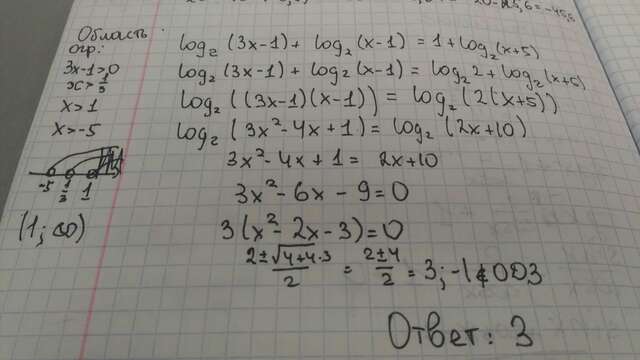 20-25,6=-45,6
Область
огр:
3x-1>0
x>1/3
x>1
x>-5
-5 1/3 1
(1; ∞)
log₂(3x-1)+ log₂(x-1) = 1+log₂(x+5)
log₂(3x-1)+ log₂(x-1) = log₂2 + log₂(x+5)
log₂((3x-1)(x-1)) = log₂(2(x+5))
log₂(3x²-4x+1) = log₂(2x+10)
3x²-4x+1 = 2x+10
3x²-6x-9=0
3(x²-2x-3)=0
2±√4+4·3/2 = 2±4/2 = 3; -1∉ОДЗ
Ответ: 3